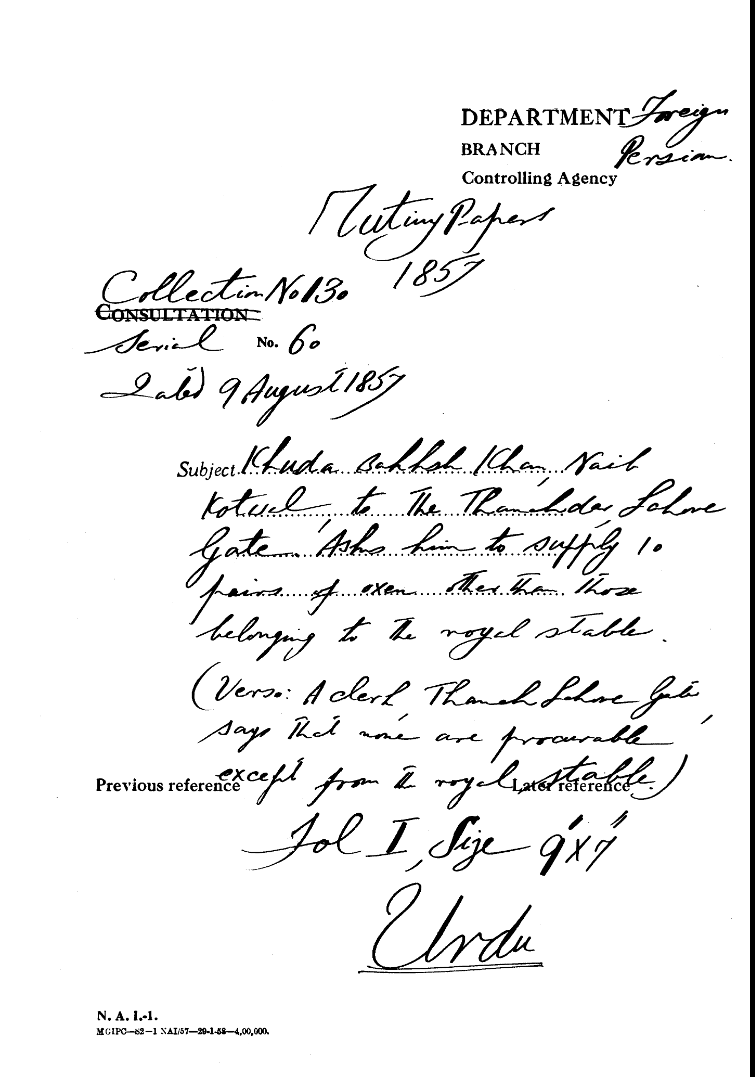 DEPARTMENT Foreign
BRANCH Persian.
Controlling Agency
Mutiny Papers
1857
Collection No 130
CONSULTATION
Serial No. 60
Dated 9 August 1857
Subject Khuda Bakhsh Khan, Naib
Kotwal, to the Thanahdar, Lahore
Gate. Asks him to supply 10
pairs of oxen other than those
belonging to the royal stable.
(Verso: A clerk, Thanah Lahore Gate,
says that none are procurable
except from the royal stable.)
Previous reference Later reference
Fol I, Size 9" x 7"
Urdu
N. A. I.-1.
MGIPC—S2—1 NAI/57—29-1-58—4,00,000.